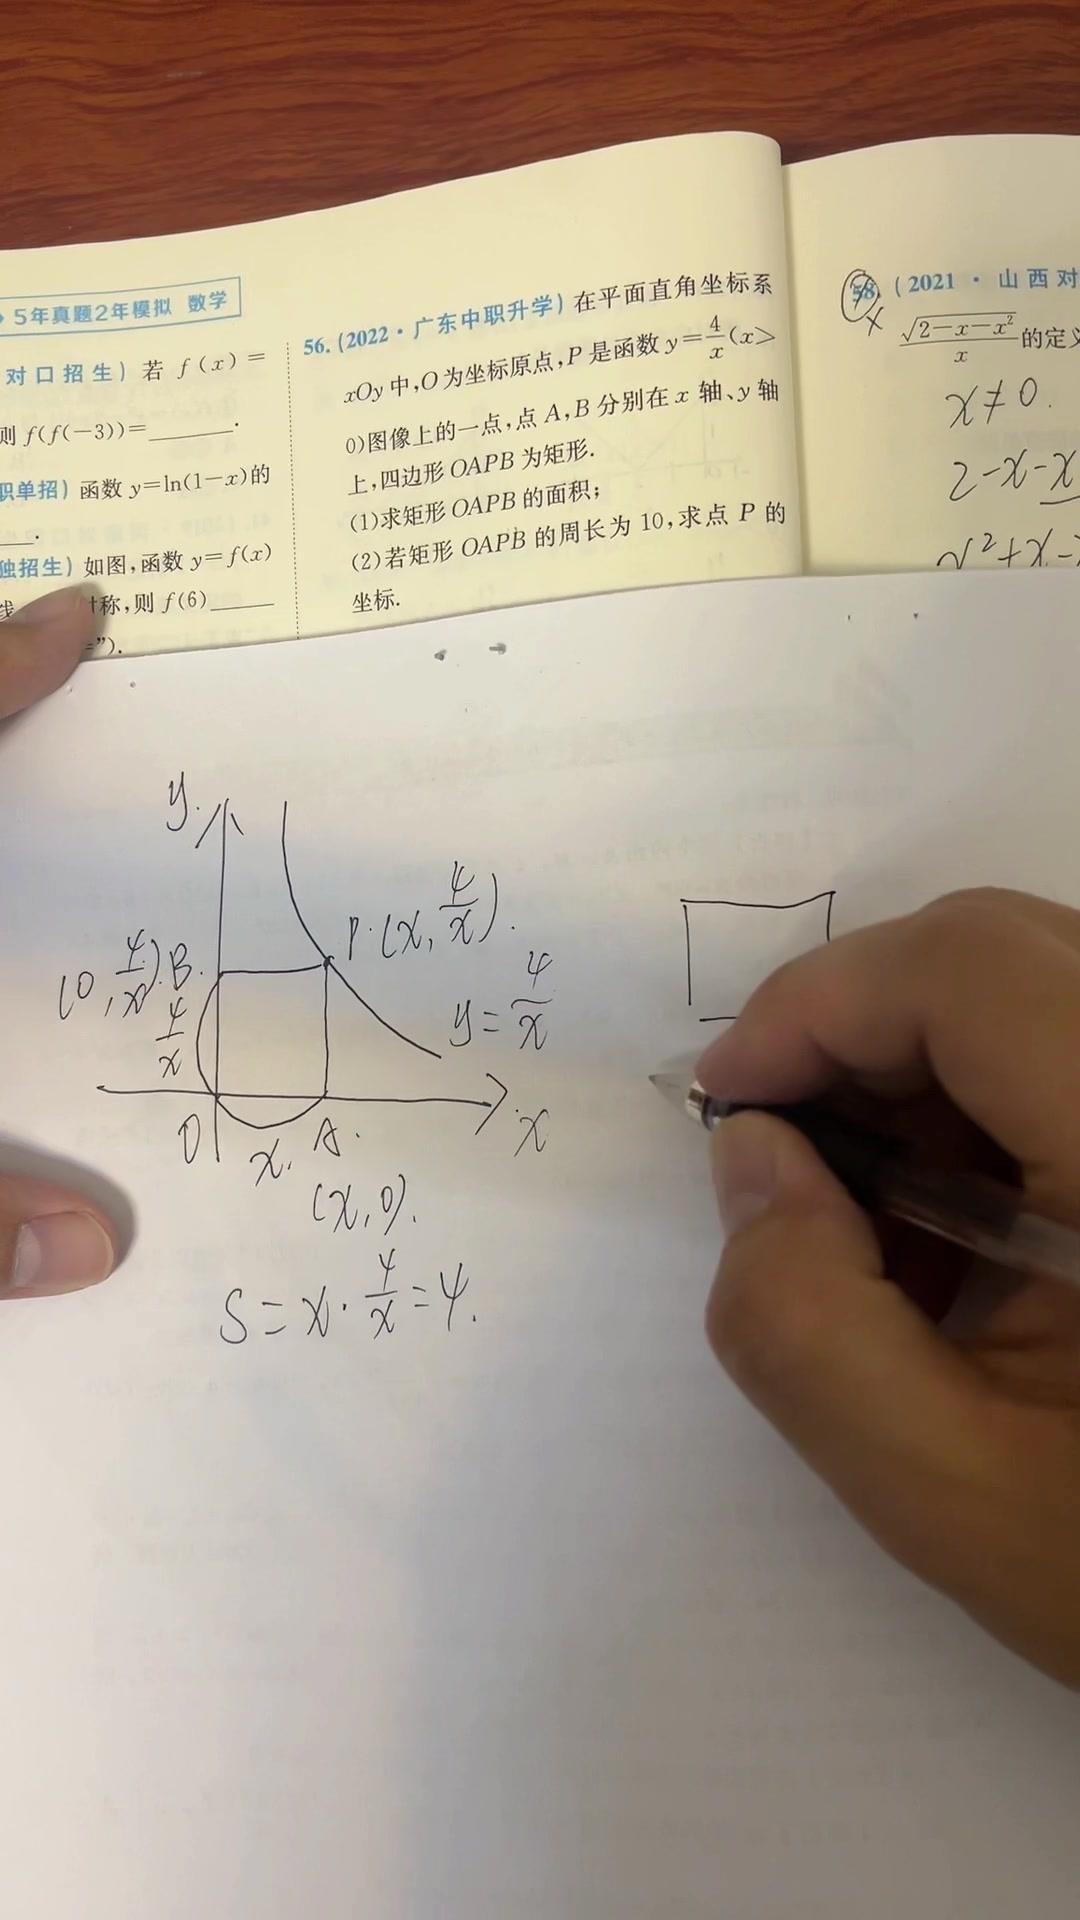 5年真题2年模拟 数学
对口招生) 若 f(x)=
则 f(f(-3))=______.
职单招) 函数 y=ln(1-x)的
______.
独招生) 如图,函数 y=f(x)
线
对称,则 f(6)______
=").
56. (2022·广东中职升学) 在平面直角坐标系
xOy 中,O 为坐标原点,P 是函数 y=4/x(x>
0)图像上的一点,点 A,B 分别在 x 轴、y 轴
上,四边形 OAPB 为矩形.
(1)求矩形 OAPB 的面积;
(2)若矩形 OAPB 的周长为 10,求点 P 的
坐标.
(2021·山西对
√(2-x-x²)/x 的定义
x≠0.
2-x-x
x²+x-
y.
P.(x, 4/x).
(0, 4/x).B.
4/x
y=4/x
O
x.
A.
x
(x,0).
S=x·4/x=4.